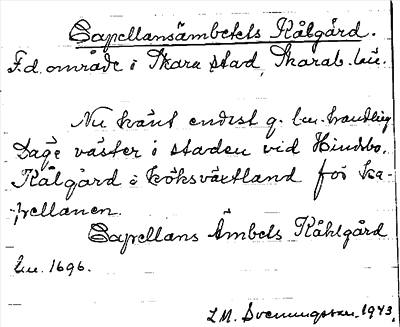 Capellansämbetets Kålgård.
F.d. område i Skara stad, Skarab. län.
Nu känt endast g. lm. handling
Läge väster i staden vid Hindsbo.
Kålgård = köksväxtland för ka-
pellanen.
Capellans Ämbets Kåhlgård
lm. 1696.
L.M. Svenungsson 1943.